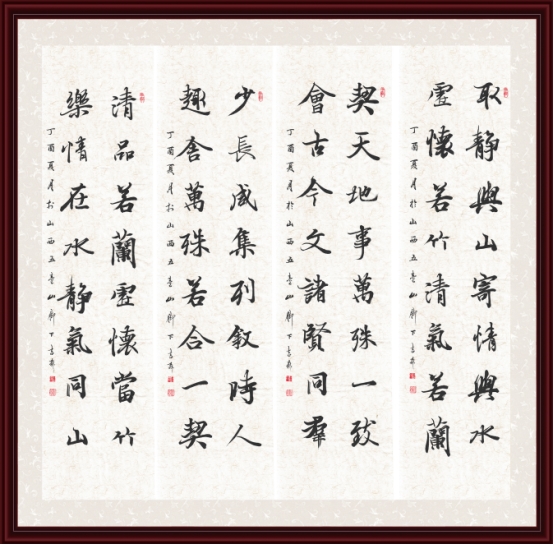 取靜與山寄情與水
虛懷若竹清氣若蘭
丁酉夏月於山西五臺山腳下
契天地事萬殊一致
會古今文諸賢同羣
丁酉夏月於山西五臺山腳下
少長咸集列敘時人
趣舍萬殊若合一契
丁酉夏月於山西五臺山腳下
清品若蘭虛懷當竹
樂情在水靜氣同山
丁酉夏月於山西五臺山腳下